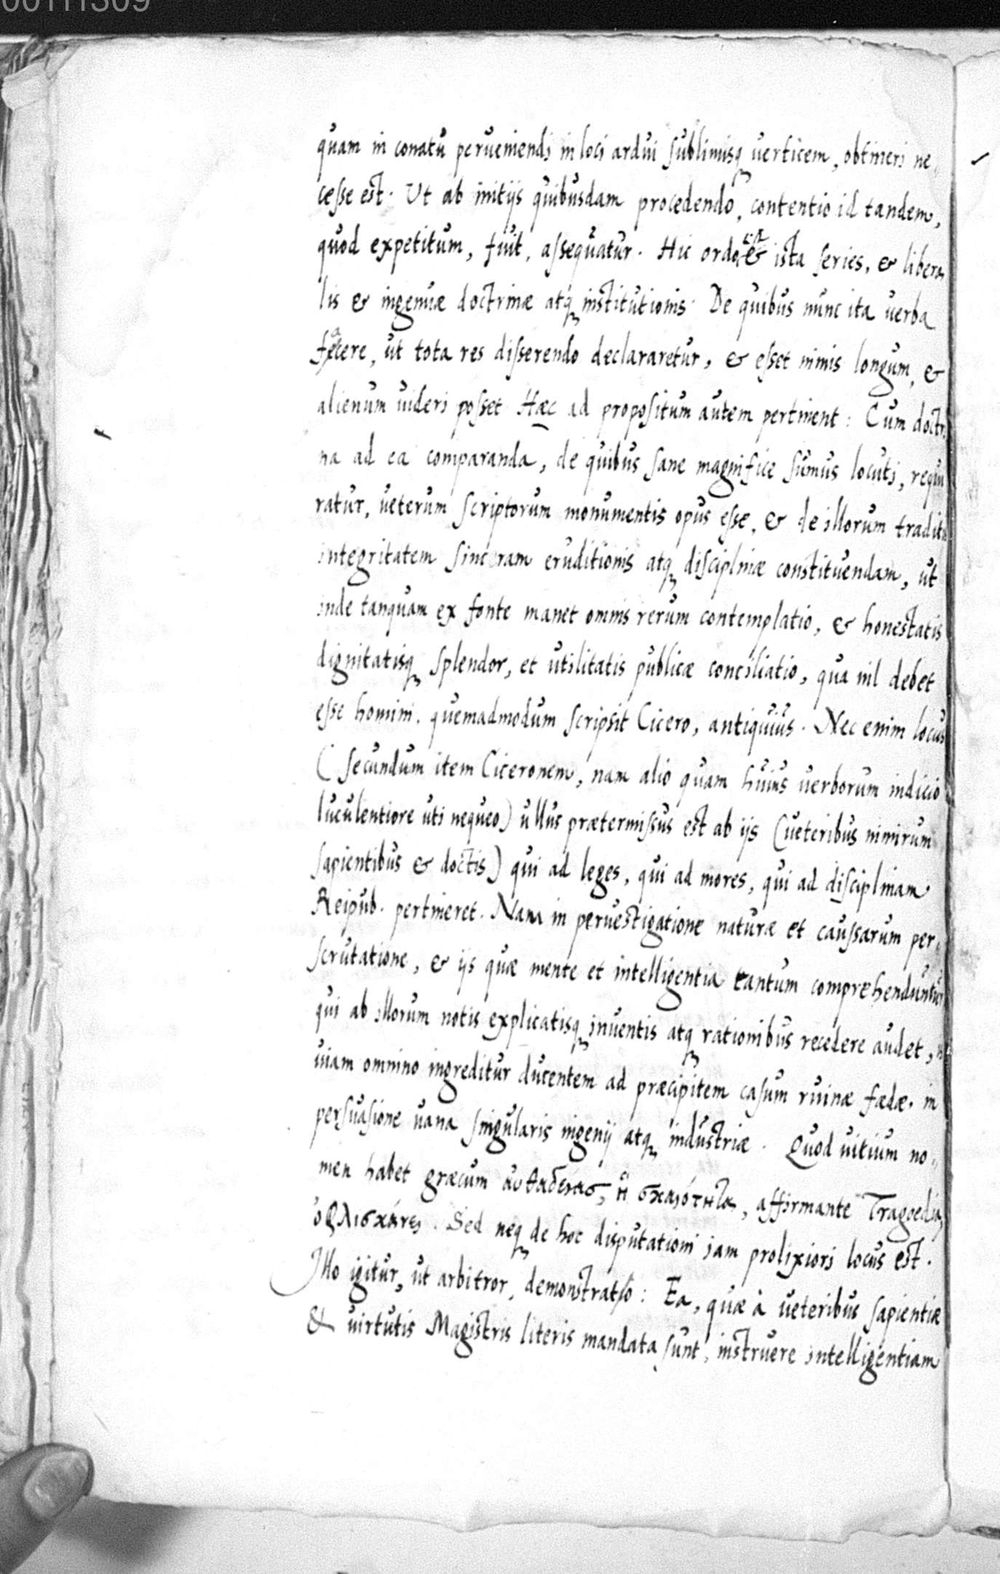 00111309
quam in conatu perueniendi in loci ardui sublimisq verticem, obtineri ne,
cesse est. Ut ab initijs quibusdam procedendo, contentio id tandem,
quod expetitum, fuit, assequatur. Hic ordo, est & ista series, & libera,
lis & ingenuæ doctrinæ atq institutionis. De quibus nunc ita uerba
facere, ut tota res disserendo declararetur, & esset nimis longum, &
alienum uideri posset. Hæc ad propositum autem pertinent: Cum doctri
na ad ea comparanda, de quibus sane magnifice sumus locuti, requi
ratur, ueterum scriptorum monumentis opus esse, & de illorum traditu
integritatem sinceram eruditionis atq disciplinæ constituendam, ut
inde tanquam ex fonte manet omnis rerum contemplatio, & honestatis
dignitatisq splendor, et utilitatis publicæ conciliatio, qua nil debet
esse homini, quemadmodum scripsit Cicero, antiquius. Nec enim locus
( secundum item Ciceronem, nam alio quam huius uerborum indicio
luculentiore uti nequeo) ullus prætermissus est ab ijs (ueteribus nimirum
sapientibus & doctis) qui ad leges, qui ad mores, qui ad disciplinam
Reipub. pertineret. Nam in peruestigatione naturæ et caussarum per,
scrutatione, & ijs quæ mente et intelligentia tantum comprehenduntur
qui ab illorum notis explicatisq inuentis atq rationibus recedere audet,
uiam omnino ingreditur ducentem ad præcipitem casum ruinæ fædæ. in
persuasione uana singularis ingenij atq industriæ. Quod uitium no,
men habet græcum αυθαδείας, ἢ σκαιότητα, affirmante Tragoedia,
ὀφλισκάνει. Sed neq de hoc disputationi iam prolixiori locus est.
Illo igitur, ut arbitror, demonstrato: Ea, quæ à ueteribus sapientiæ
& uirtutis Magistris literis mandata sunt, instruere intelligentiam